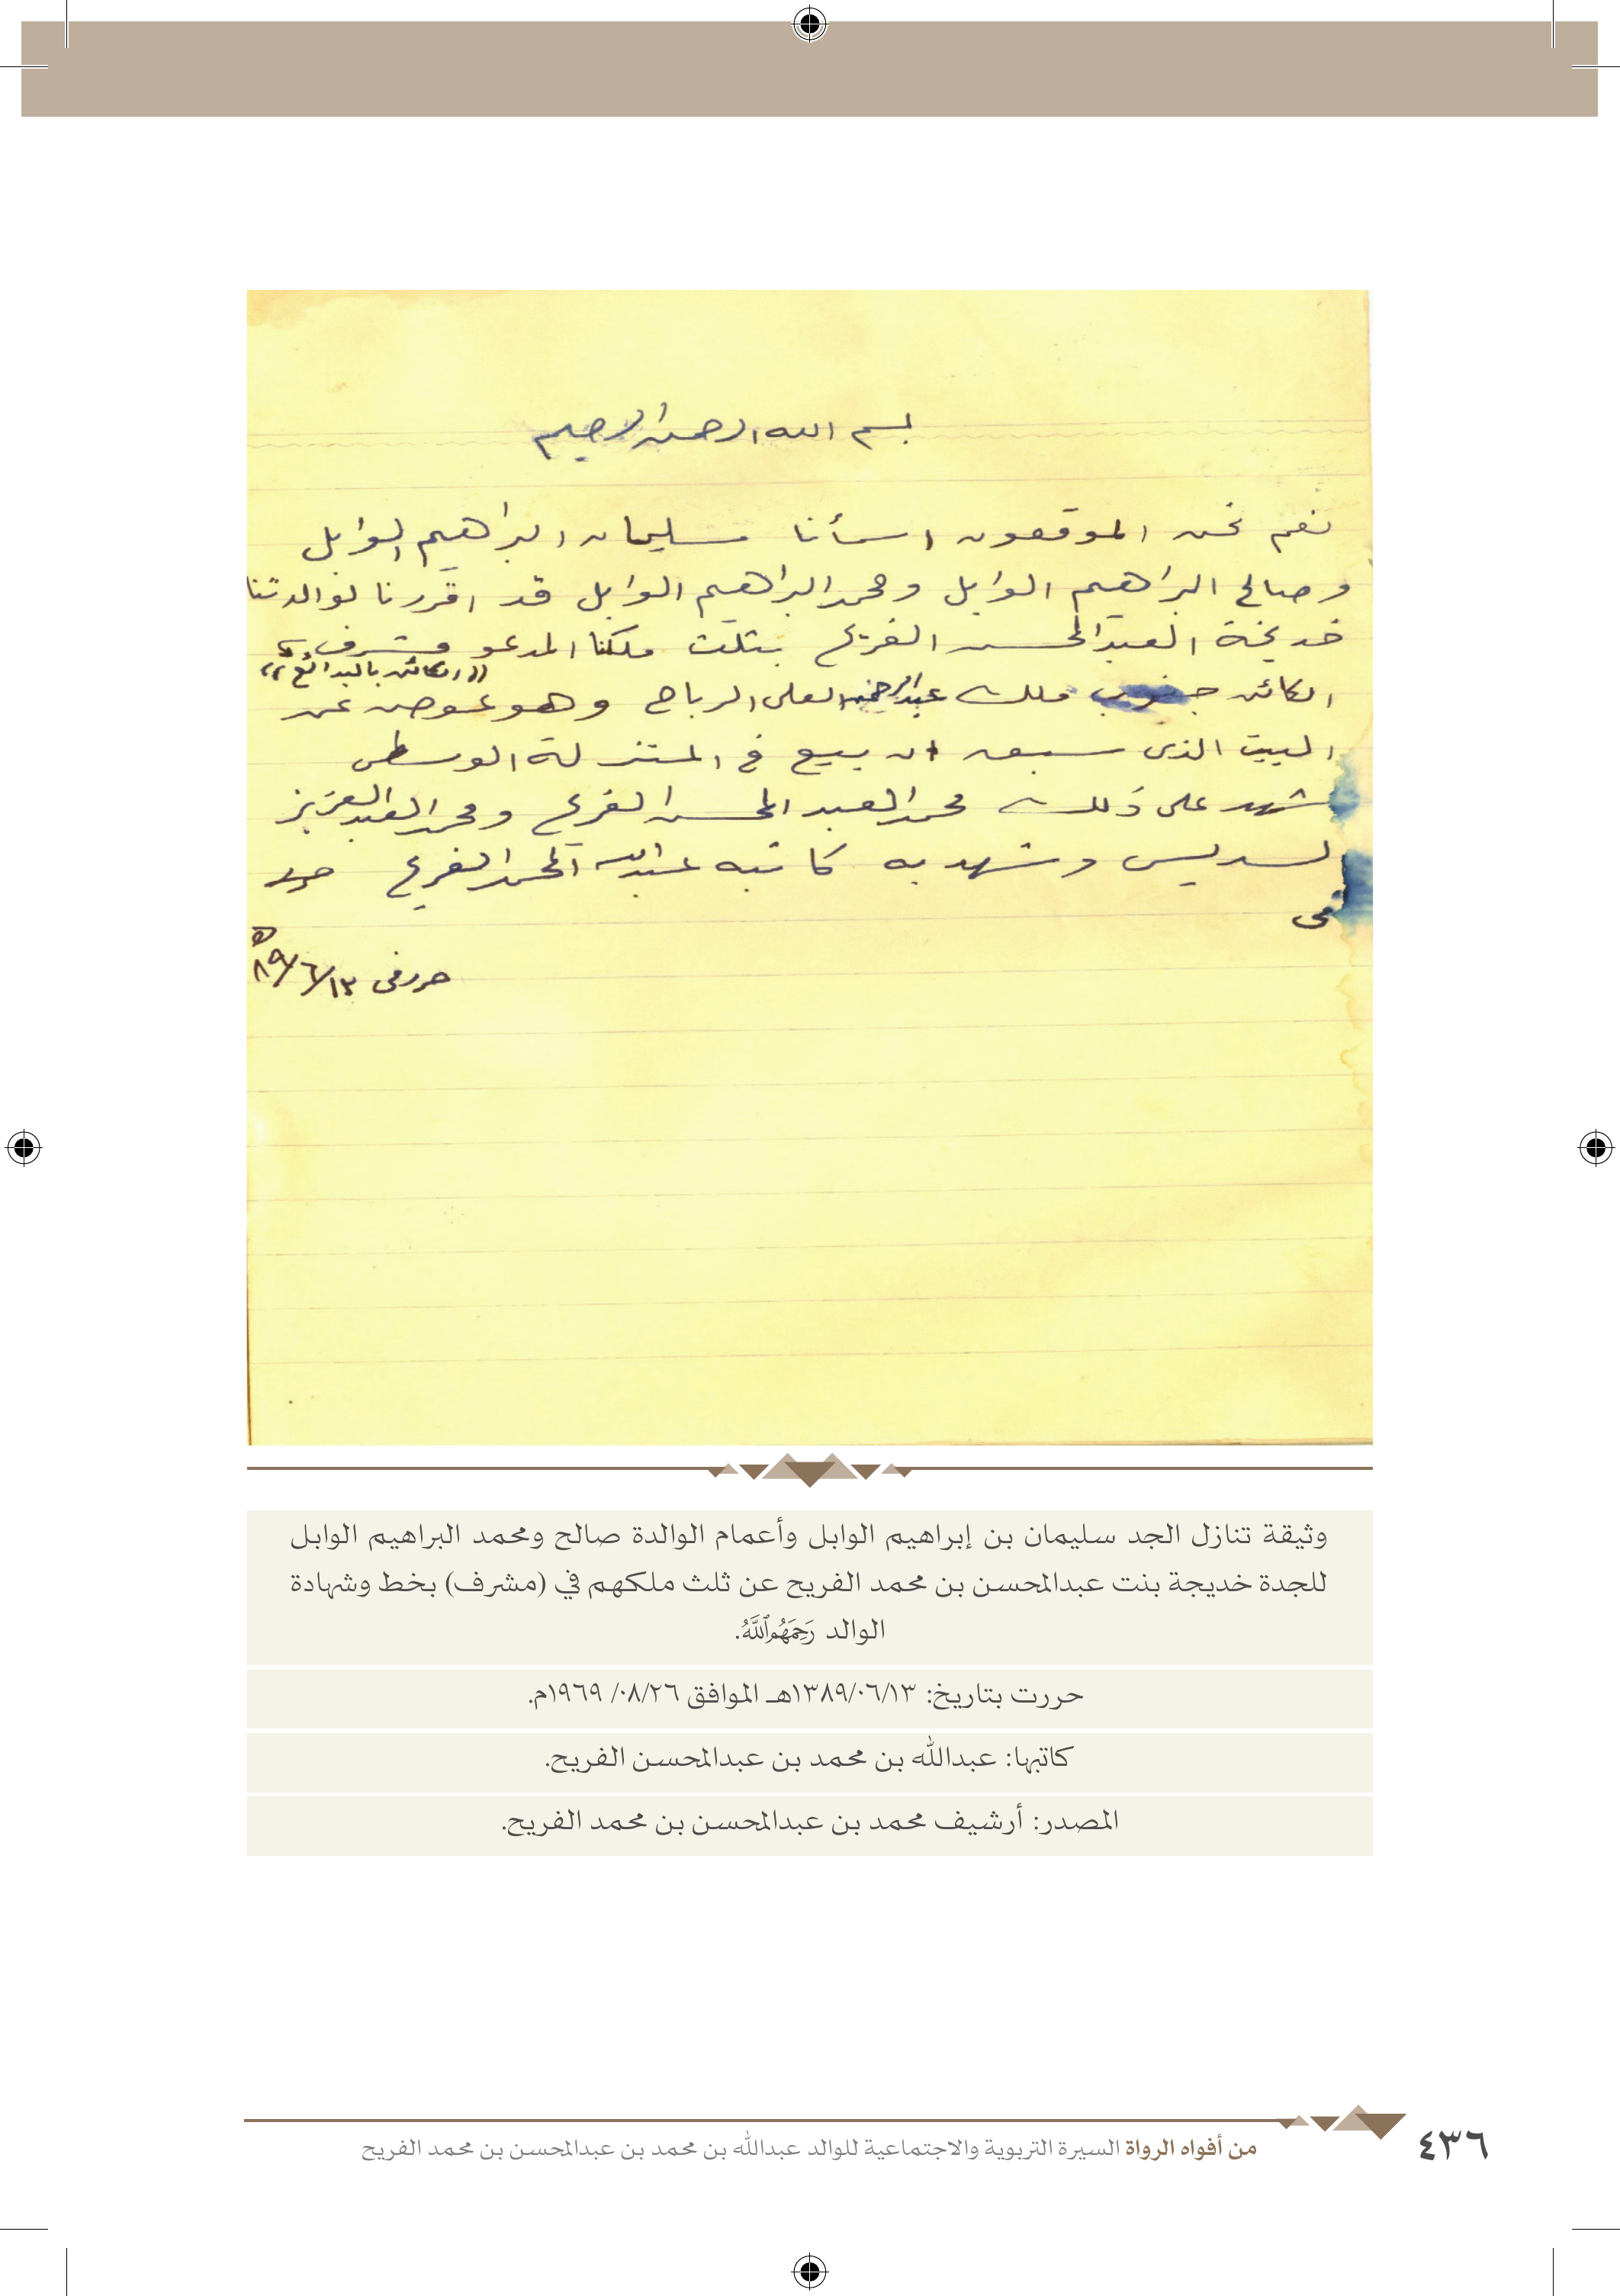 بسم الله الرحمن الرحيم
نعم نحن الموقعون اسمأنا سليمان ابراهيم الوابل
وصالح البراهيم الوابل ومحمد البراهيم الوابل قد اقررنا لوالدتنا
خديجة العبدالمحسن الفريح بثلث ملكنا المدعو مشرف
((الكائن بالبدائع))
الكائن جنوب ملك عبدالرحمن العلي الرباح وهو عوض عن
البيت الذي سبق ان بيع في المنزلة الوسطى
شهد على ذلك محمد العبد المحسن الفريح ومحمد العبد العزيز
السديس وشهد به كاتبه عبدالله المحمد الفريح حرر
في
حرر في ١٣/٦/٨٩ هـ
وثيقة تنازل الجد سليمان بن إبراهيم الوابل وأعمام الوالدة صالح ومحمد البراهيم الوابل
للجدة خديجة بنت عبدالمحسن بن محمد الفريح عن ثلث ملكهم في (مشرف) بخط وشهادة
الوالد رَحِمَهُمُ ٱللَّهُ.
حررت بتاريخ: ١٣٨٩/٠٦/١٣هـ الموافق ٠٨/٢٦/ ١٩٦٩م.
كاتبها: عبدالله بن محمد بن عبدالمحسن الفريح.
المصدر: أرشيف محمد بن عبدالمحسن بن محمد الفريح.
من أفواه الرواة السيرة التربوية والاجتماعية للوالد عبدالله بن محمد بن عبدالمحسن بن محمد الفريح
٤٣٦